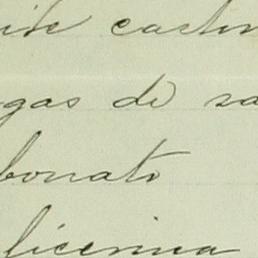 ite castor
gas de sa
bonato
licerina